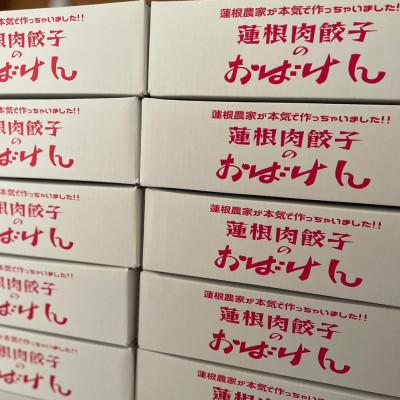 蓮根農家が本気で作っちゃいました!!
蓮根肉餃子
の
おばけん
蓮根農家が本気で作っちゃいました!!
蓮根肉餃子
の
おばけん
蓮根農家が本気で作っちゃいました!!
蓮根肉餃子
の
おばけん
蓮根農家が本気で作っちゃいました!!
蓮根肉餃子
の
おばけん
蓮根農家が本気で作っちゃいました!!
根肉餃子
の
おばけん
が本気で作っちゃいました!!
根肉餃子
の
ばけん
家が本気で作っちゃいました!!
根肉餃子
の
ばけん
農家が本気で作っちゃいました!!
根肉餃子
の
おばけん
農家が本気で作っちゃいました!!
根肉餃子
の
おばけん
農家が本気で作っちゃいました!!